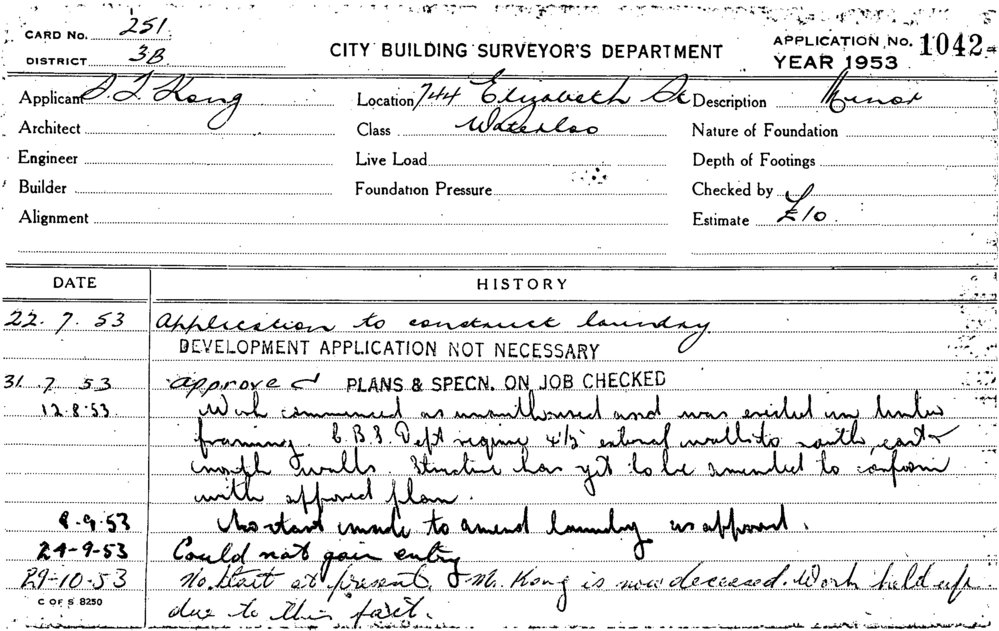 CARD No. 251
DISTRICT 3B
CITY BUILDING SURVEYOR'S DEPARTMENT
APPLICATION No. 1042
YEAR 1953
Applicant Kong
Location 744 Elizabeth St
Description Minor
Architect
Class Waterloo
Nature of Foundation
Engineer
Live Load
Depth of Footings
Builder
Foundation Pressure
Checked by
Alignment
Estimate £10
DATE HISTORY
22.7.53 Application to construct laundry
DEVELOPMENT APPLICATION NOT NECESSARY
31.7.53 approved PLANS & SPECN. ON JOB CHECKED
12.8.53 Work commenced as unauthorised and was erected in timber
framing. C.B.S. Dept require 4½" external walls to south east &
north walls. Structure has yet to be amended to conform
with approved plan.
8.9.53 No start made to amend laundry as approved.
24-9-53 Could not gain entry
29-10-53 No start at present. Mr. Kong is now deceased. Work held up
C OF S 8250
due to this fact.